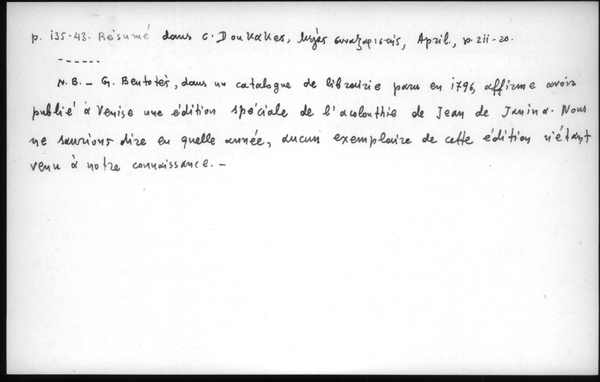 p. 135-48. Résumé dans C. Doukakes, Μέγας συναξαριστής, April., p. 211-20.
------
N.B. – G. Bentotès, dans un catalogue de librairie paru en 1796, affirme avoir
publié à Venise une édition spéciale de l'acolouthie de Jean de Janina. Nous
ne saurions dire en quelle année, aucun exemplaire de cette édition n'étant
venu à notre connaissance. –